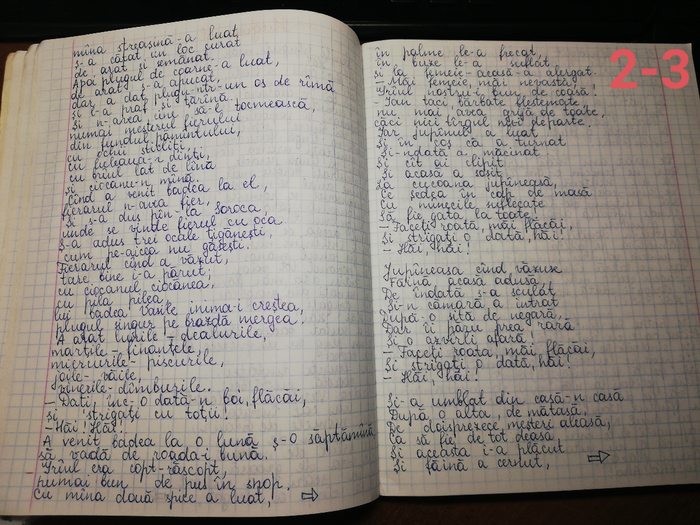 mîna streașină-a luat
ș-a căpat în loc curat
de arat și semănat.
Apa plugul de coarne-a luat,
de arat s-a apucat,
dar a dat plugu-ntr-un os de rîmă
și l-a prat și tărînă.
Și n-area cini să-l tocmească,
numai meșterul fierului
din fundul pămîntului,
cu ochii stibliți,
cu fuleaua-n dinți,
cu brîul lat de lînă
și ciocanu-n mînă.
Cînd a venit badea la el,
fierarul n-avea fier,
Și s-a dus pîn-la Soroca,
unde se vinde fierul cu oca
ș-a adus trei ocale țigănești
cum pe-aicea nu găsești.
Fierarul cînd a văzut,
tare bine i-a părut;
cu ciocanul ciocănea,
cu pila pilea,
lui badea Vasile inima-i creștea,
plugul singur pe brazdă mergea.
A arat lunile-dealurile,
marțile-finanțele,
miercurile-piscurile,
joile-văile,
vinerile-dîmburile.
- Dați, înc-o dată-n boi, flăcăi,
și strigați cu toții!
-Hăi! Hăi!
A venit badea la o lună ș-o săptămînă
să vadă de roada-i bună.
Grîul era copt-răscopt,
numai bun de pus în snop.
Cu mîna două spice a luat,
în palme le-a frecat,
în buze le-a suflat
și la femeie-acasă-a alergat.
-Măi femeie, măi nevastă!
Grîul nostru-i bun de coasă!
- Ian taci bărbate blestemate,
nu mai avea grijă de toate,
căci nici tîrgul nu-i departe.
Iar jupînul a luat
Și în coș că a turnat
Și-ndată a măcinat
Și cît ai clipit
Și acasă a sosit
La cucoana jupîneasă,
Ce ședea în cap de masă
Cu mînecile suflecate
Să fie gata la toate.
-Faceți roată, măi flăcăi,
Și strigați o dată, hăi!
- Hăi, hăi!
Jupîneasa cînd văzuse
Făină acasă adusă,
De îndată s-a sculat
Și-n cămară a intrat
După-o sită de negară.
Dar îi păru prea rară
Și o azvîrli afară!
-Faceți roata, măi flăcăi,
Și strigați o dată, hăi!
- Hăi, hăi!
Și-a umblat din casă-n casă
După o alta, de mătasă,
De doisprezece meșteri aleasă,
Ca să fie de tot deasă,
Și aceasta i-a plăcut
Și făină a cernut,
2-3